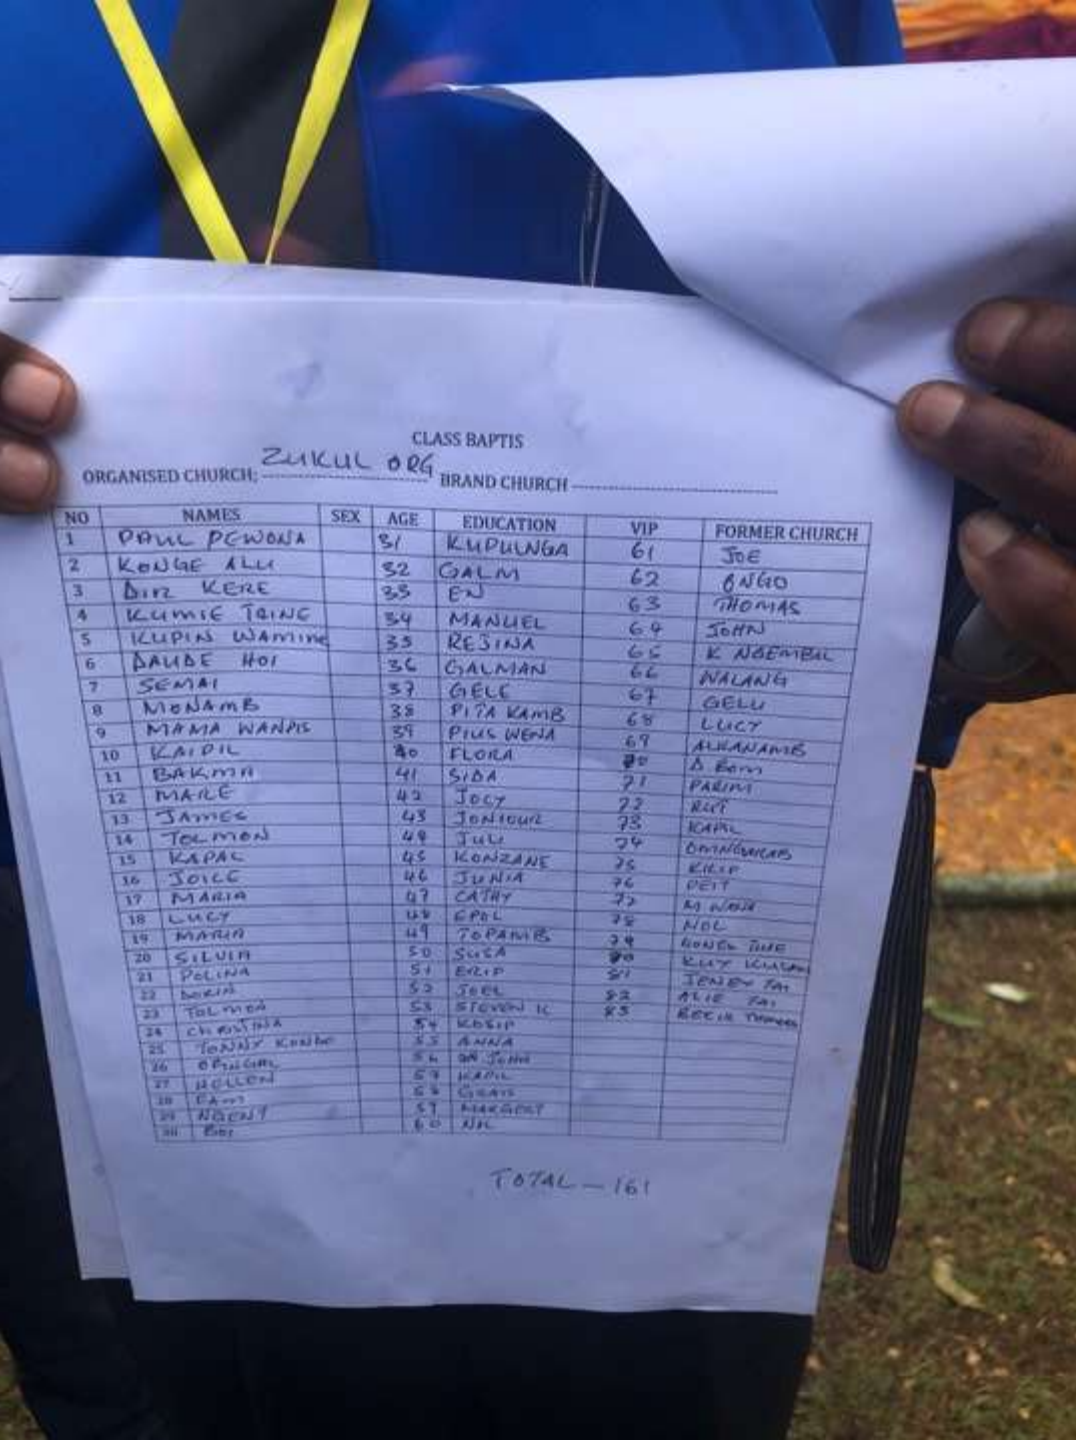 CLASS BAPTIS
ORGANISED CHURCH; ZUKUL ORG BRAND CHURCH
NO NAMES SEX AGE EDUCATION VIP FORMER CHURCH
1 PAUL PEWONA 31 KUPULNGA 61 JOE
2 KONGE ALU 32 GALM 62 ONGO
3 DIR KERE 33 EN 63 THOMAS
4 KUMIE TRINE 34 MANUEL 64 JOHN
5 KUPIN WAMINE 35 REJINA 65 K NGEMBUL
6 DAUDE HOI 36 GALMAN 66 WALANG
7 SEMAI 37 GELE 67 GELU
8 MONAMB 38 PITA KAMB 68 LUCY
9 MAMA WANPIS 39 PIUS WENA 69 ALKANAMB
10 KAIPIL 40 FLORA 70 D BOM
11 BAKMA 41 SIDA 71 PARIM
12 MARE 42 JOCY 72 RUT
13 JAMES 43 JONIOUR 73 KAPIL
14 TOLMON 44 JULI 74
15 KAPAL 45 KONZANE 75 KILIP
16 JOICE 46 JUNIA 76 PEIT
17 MARIA 47 CATHY 77 M WANA
18 LUCY 48 EPOL 78 NOL
19 MARIA 49 TOPAMB 79
20 SILVIA 50 SUSA 80 KUY
21 POLINA 51 ERIP 81 JENEY TAI
22 DORIN 52 JOEL 82 ALIE TAI
23 TOLMON 53 STEVEN K 83
24 CHRISTINA 54 KOSIP
25 TONNY KONDO 55 ANNA
26 56 JOHN
27 HELLEN 57 KAPIL
28 58
29 NGENT 59 MARGERT
30 BOI 60 NK
TOTAL - 161